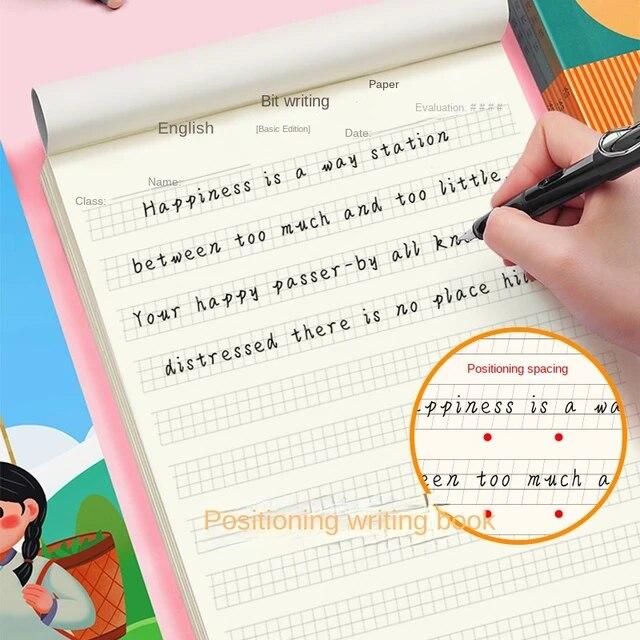 Paper
Bit writing
English [Basic Edition] Date: Evaluation: ####
Class: Name:
Happiness is a way station
between too much and too little.
Your happy passer-by all
distressed there is no place
Positioning spacing
ppiness is a wa
een too much a
Positioning writing book